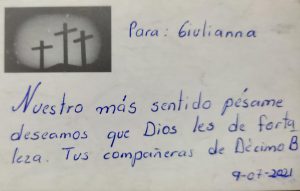 Para: Giulianna
Nuestro más sentido pésame
deseamos que Dios les de forta
leza. Tus compañeras de Décimo B
9-07-2021